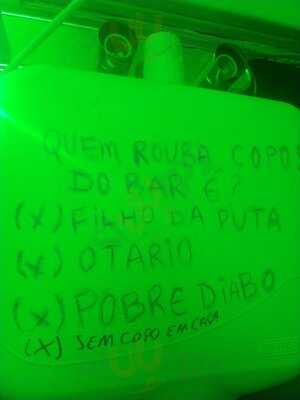 QUEM ROUBA COPOS
DO BAR É?
(X) FILHO DA PUTA
(X) OTARIO
(X) POBRE DIABO
(X) SEM COPO EM CASA